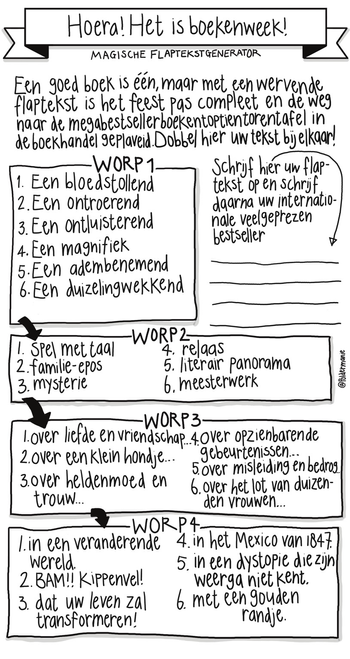 Hoera! Het is boekenweek!
MAGISCHE FLAPTEKSTGENERATOR
Een goed boek is één, maar met een wervende
flaptekst is het feest pas compleet en de weg
naar de megabestsellerboekentoptientorentafel in
de boekhandel geplaveid. Dobbel hier uw tekst bij elkaar!
WORP 1
1. Een bloedstollend
2. Een ontroerend
3. Een ontluisterend
4. Een magnifiek
5. Een adembenemend
6. Een duizelingwekkend
Schrijf hier uw flap-
tekst op en schrijf
daarna uw internatio-
nale veelgeprezen
bestseller
WORP 2
1. spel met taal
2. familie-epos
3. mysterie
4. relaas
5. literair panorama
6. meesterwerk
WORP 3
1. over liefde en vriendschap...
2. over een klein hondje...
3. over heldenmoed en
trouw...
4. over opzienbarende
gebeurtenissen...
5. over misleiding en bedrog
6. over het lot van duizen-
den vrouwen...
WORP 4
1. in een veranderende
wereld.
2. BAM!! Kippenvel!
3. dat uw leven zal
transformeren!
4. in het Mexico van 1847.
5. in een dystopie die zijn
weerga niet kent.
6. met een gouden
randje.